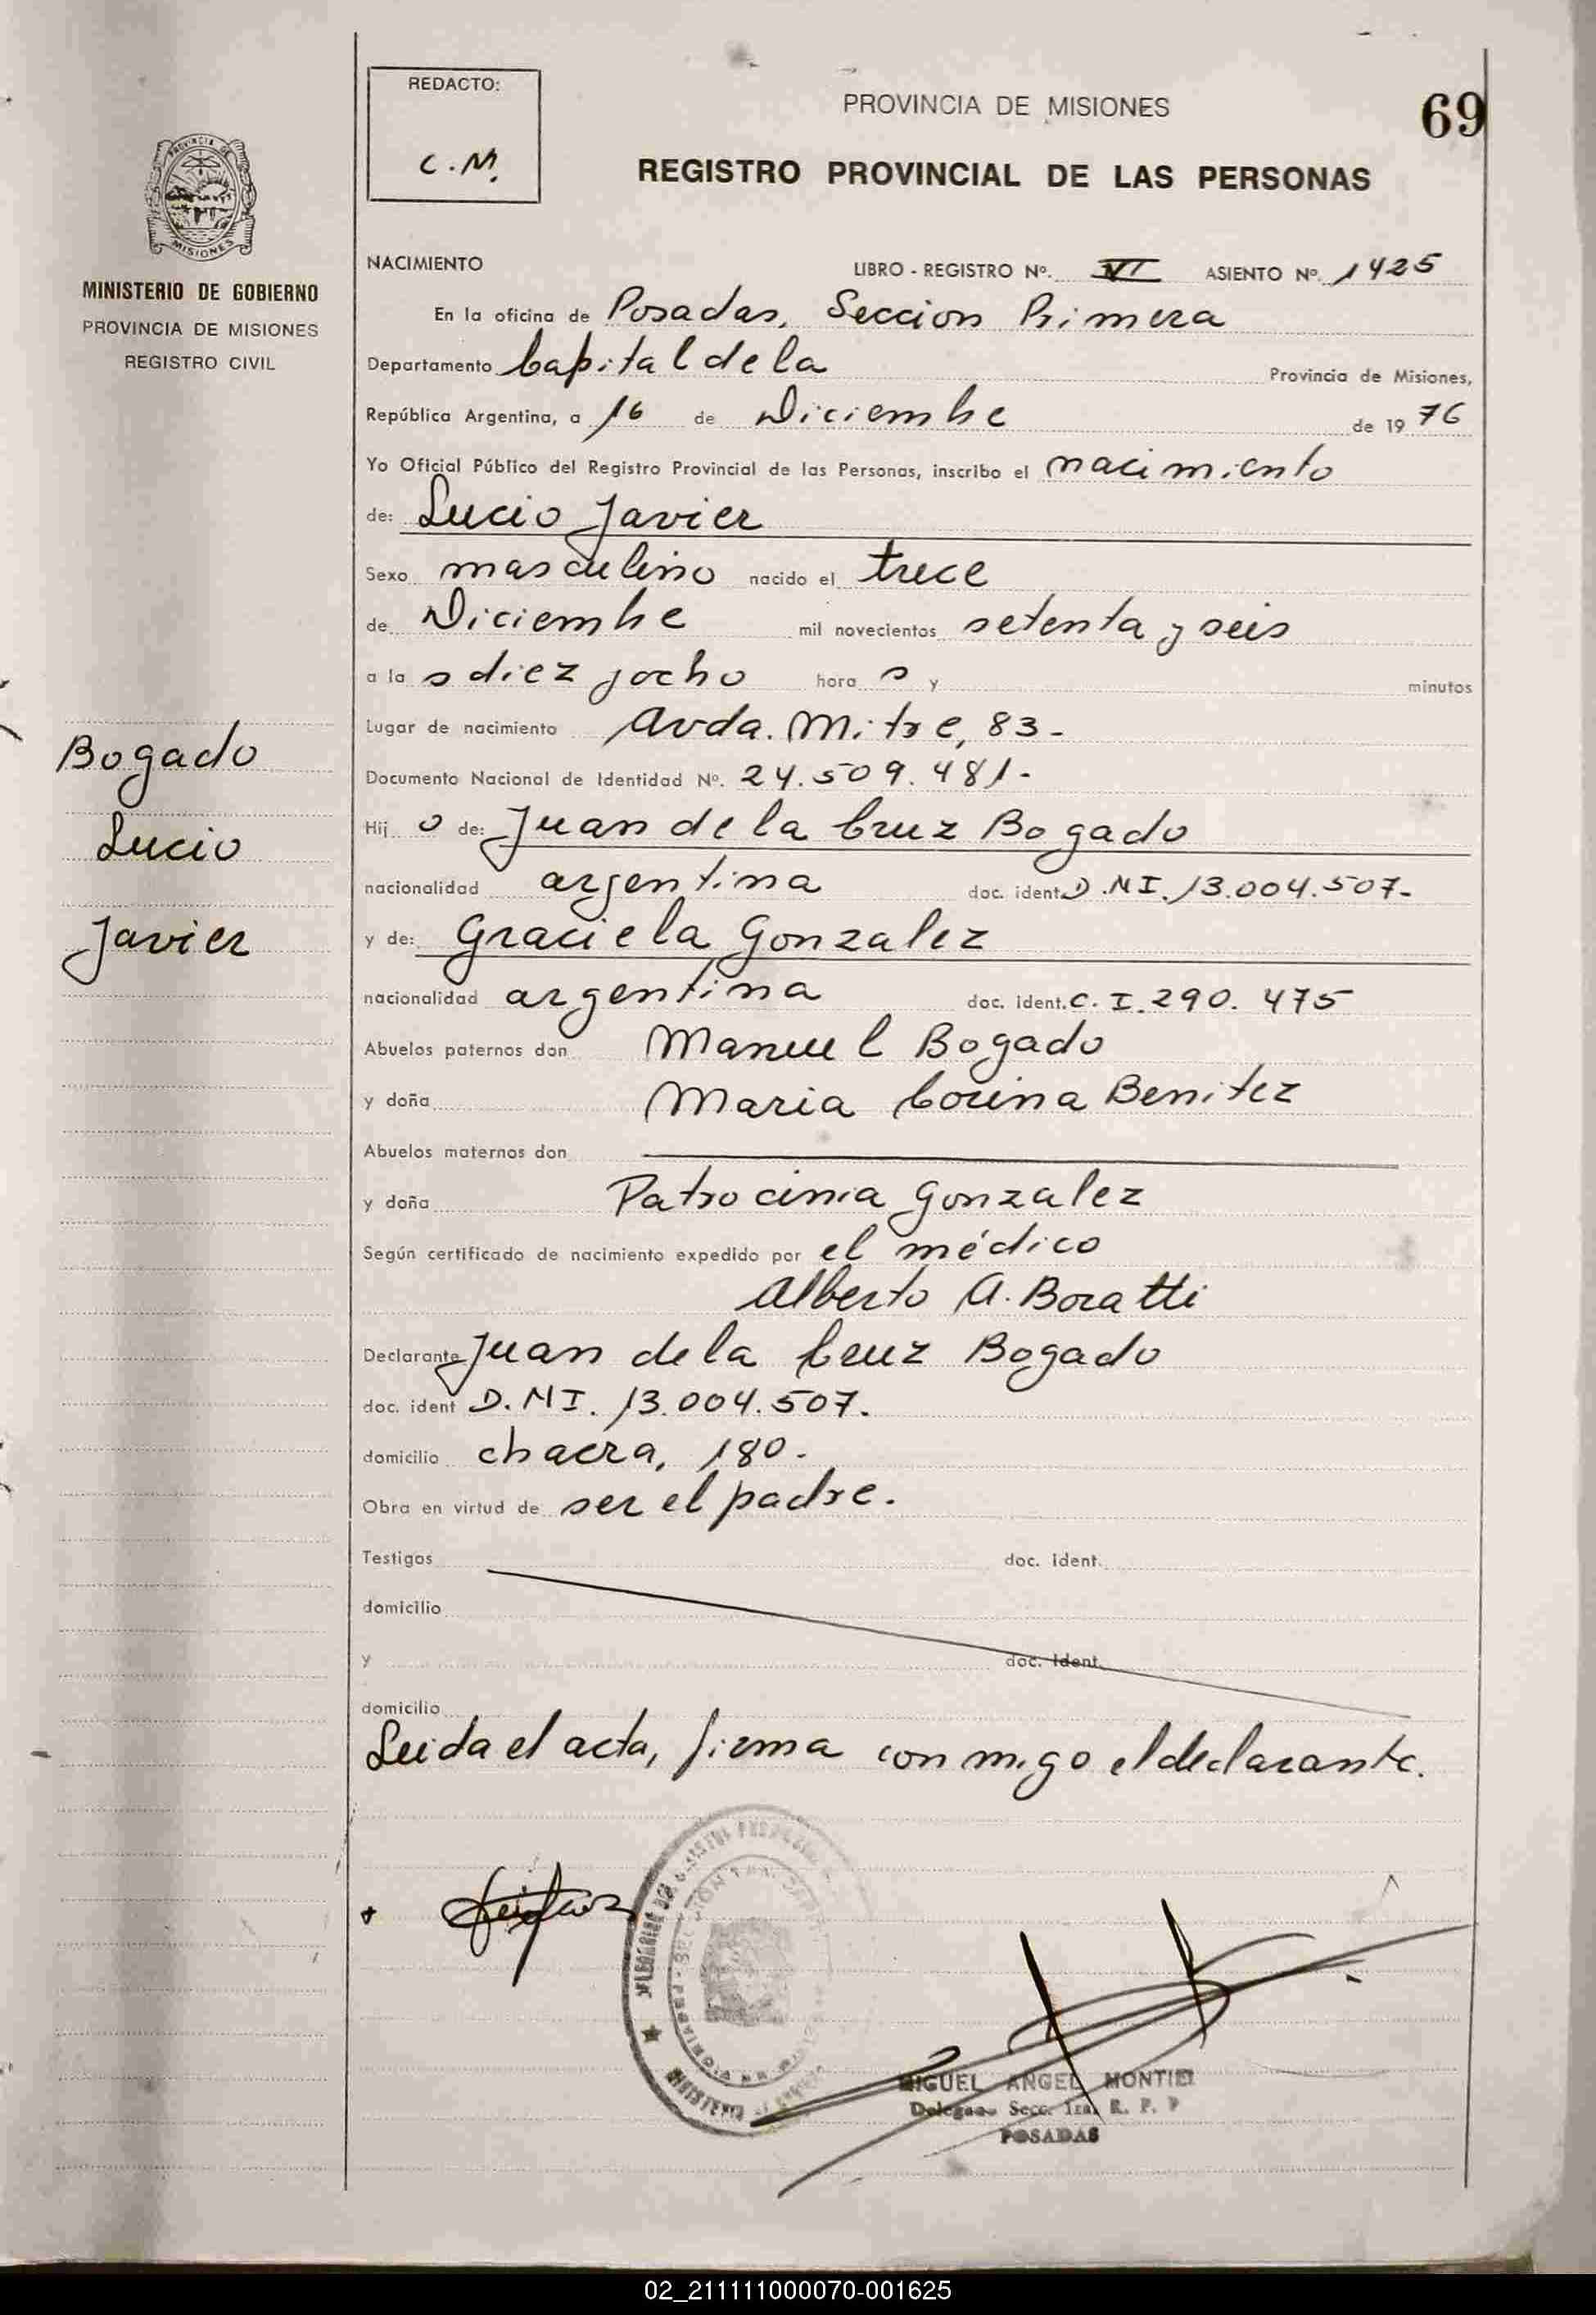 REDACTO:
C.M.
PROVINCIA DE MISIONES
69
REGISTRO PROVINCIAL DE LAS PERSONAS
PROVINCIA DE
MISIONES
MINISTERIO DE GOBIERNO
PROVINCIA DE MISIONES
REGISTRO CIVIL
NACIMIENTO
LIBRO - REGISTRO Nº. VI ASIENTO Nº. 1425
En la oficina de Posadas, Seccion Primera
Departamento Capital de la Provincia de Misiones,
República Argentina, a 16 de Diciembre de 19 76
Yo Oficial Público del Registro Provincial de las Personas, inscribo el nacimiento
de: Lucio Javier
Sexo masculino nacido el trece
de Diciembre mil novecientos setenta y seis
a la s diez y ocho hora s y minutos
Lugar de nacimiento Avda. Mitre, 83-
Documento Nacional de Identidad Nº. 24.509.481-
Hij o de: Juan de la Cruz Bogado
nacionalidad argentina doc. ident. D.N.I. 13.004.507-
y de: Graciela Gonzalez
nacionalidad argentina doc. ident. C.I. 290.475
Abuelos paternos don Manuel Bogado
y doña Maria Corina Benitez
Abuelos maternos don
y doña Patrocinia Gonzalez
Según certificado de nacimiento expedido por el médico
Alberto A. Boratti
Declarante Juan de la Cruz Bogado
doc. ident D.N.I. 13.004.507.
domicilio chacra, 180-
Obra en virtud de ser el padre.
Testigos doc. ident.
domicilio
y doc. ident.
domicilio
Leida el acta, firma conmigo el declarante.
Bogado
Lucio
Javier
MIGUEL ANGEL MONTIEL
Delegado Secc. 1ra. R. P. P
POSADAS
02_211111000070-001625